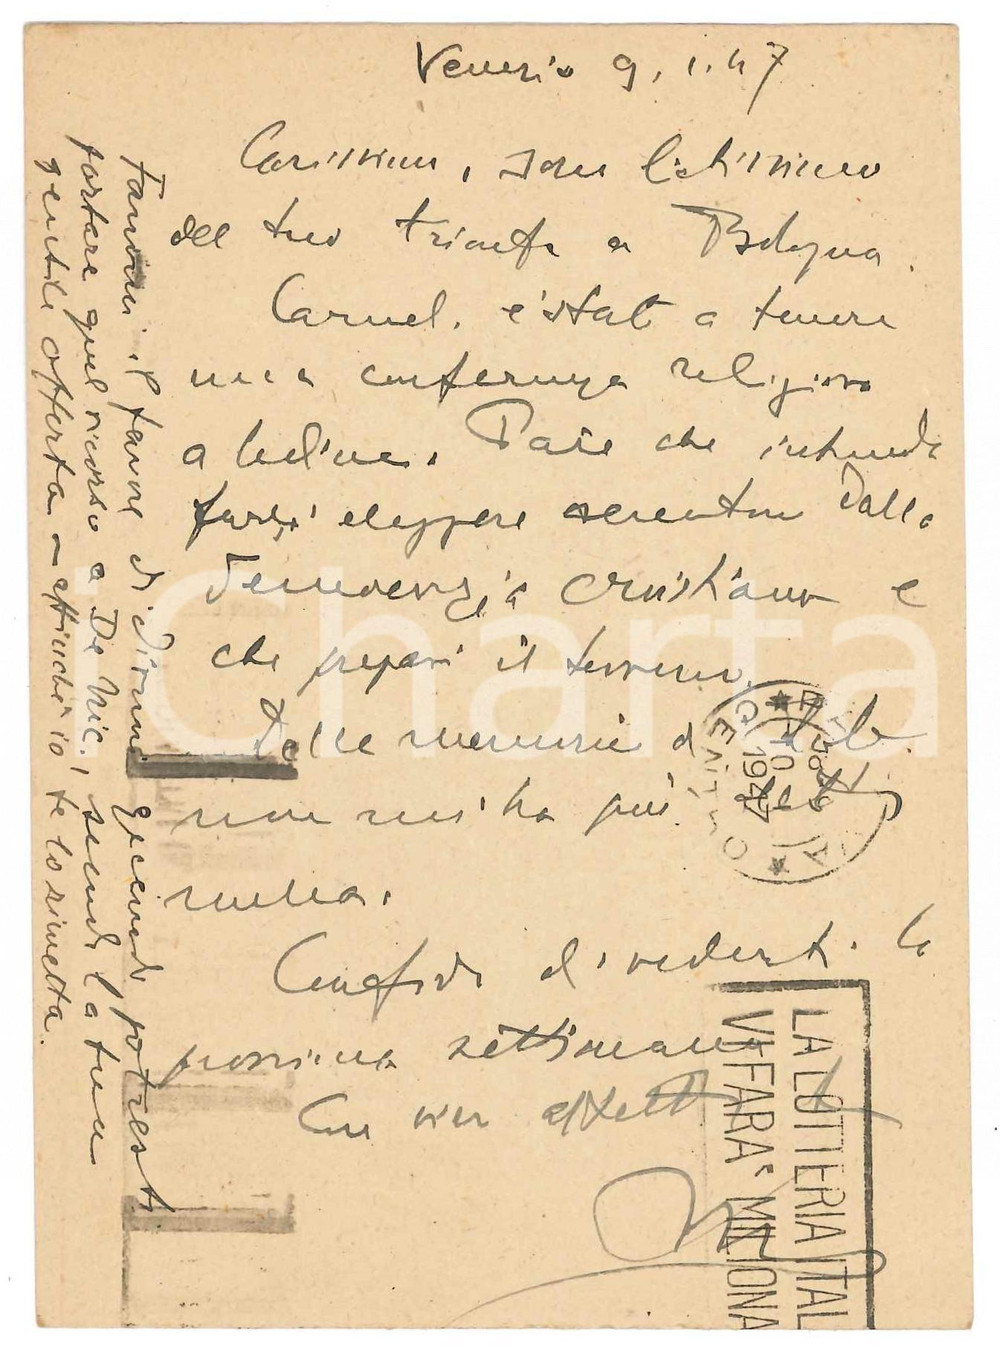 Venezia 9.1.47
Carissimo, sono lietissimo
del tuo trionfo a Bologna.
Carnel. è stato a tenere
una conferenza religiosa
a Udine. Pare che intenda
farsi eleggere senatore dalla
Democrazia Cristiana e
che prepari il terreno.
Delle memorie di
non mi ha più detto
nulla.
Confido di vederti la
prossima settimana
Con vivo affetto tuo
Fammi il favore di dirmi quando potresti
portare quel ricorso a De Nic., sendo la tua
gentile offerta - affinché io te lo rimetta.
1947
LA LOTTERIA ITAL
VI FARA' MILIONA
iCharta